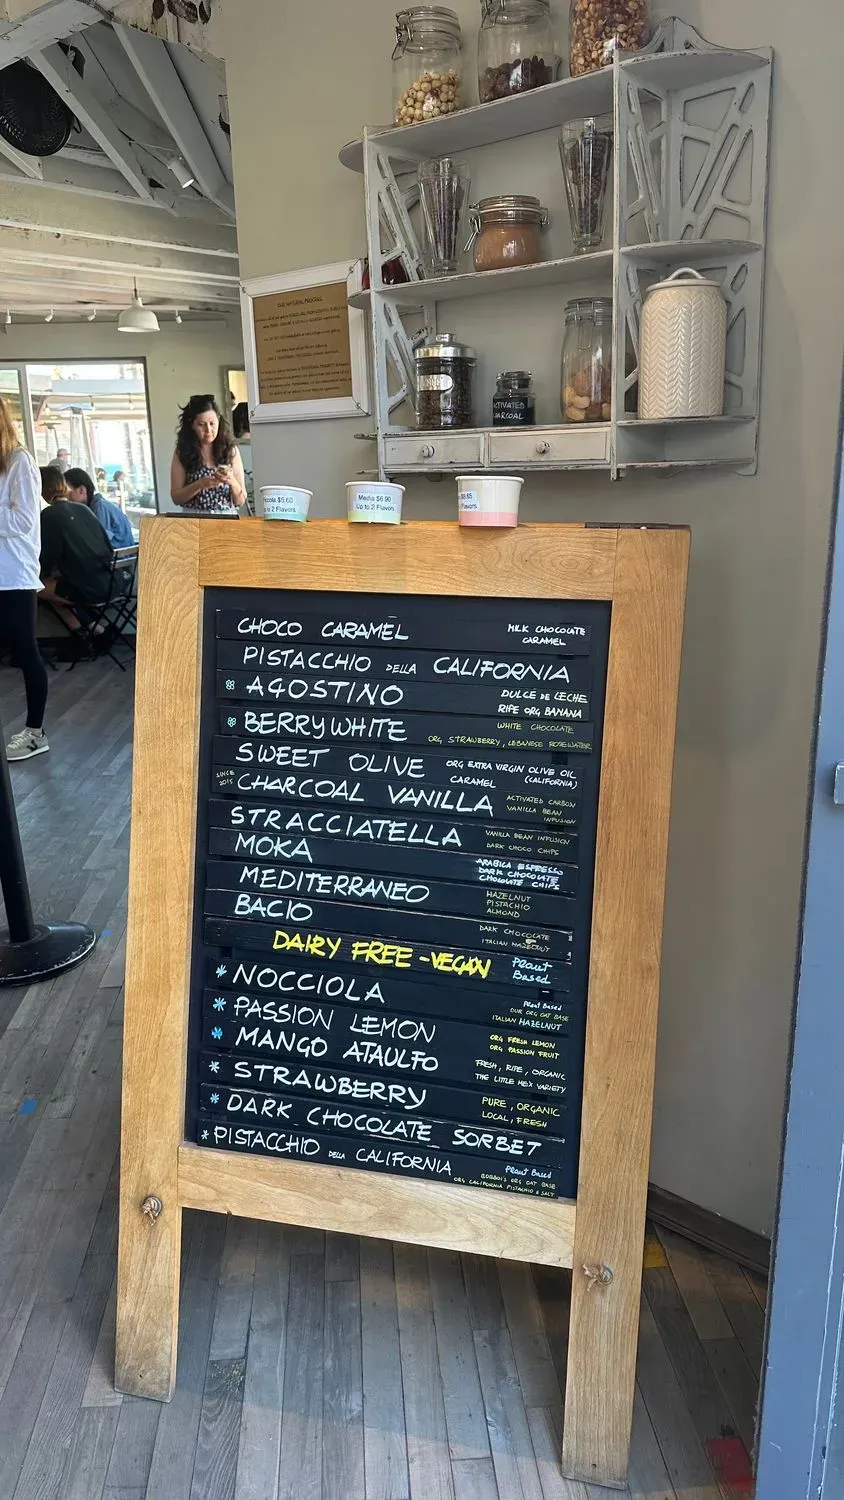 OUR NATURAL PROCESS
ACTIVATED
CHARCOAL
Piccola $5.60
up to 2 Flavors
Media $6.90
Up to 2 Flavors
$8.65
Flavors
CHOCO CARAMEL MILK CHOCOLATE
CARAMEL
PISTACCHIO DELLA CALIFORNIA
AGOSTINO DULCE DE LECHE
RIPE ORG BANANA
BERRYWHITE WHITE CHOCOLATE
ORG STRAWBERRY, LEBANESE ROSEWATER
SWEET OLIVE ORG EXTRA VIRGIN OLIVE OIL
CARAMEL (CALIFORNIA)
SINCE
2015
CHARCOAL VANILLA ACTIVATED CARBON
VANILLA BEAN
INFUSION
STRACCIATELLA VANILLA BEAN INFUSION
DARK CHOCO CHIPS
MOKA ARABICA ESPRESSO
DARK CHOCOLATE
CHOCOLATE CHIPS
MEDITERRANEO HAZELNUT
PISTACHIO
ALMOND
BACIO DARK CHOCOLATE
ITALIAN HAZELNUT
DAIRY FREE - VEGAN Plant
Based
* NOCCIOLA Plant Based
OUR ORG OAT BASE
ITALIAN HAZELNUT
* PASSION LEMON ORG FRESH LEMON
ORG PASSION FRUIT
* MANGO ATAULFO FRESH, RIPE, ORGANIC
THE LITTLE MEX VARIETY
* STRAWBERRY PURE, ORGANIC
LOCAL, FRESH
* DARK CHOCOLATE SORBET
* PISTACCHIO DELLA CALIFORNIA Plant Based
ORG OAT BASE
ORG CALIFORNIA PISTACHIO & SALT